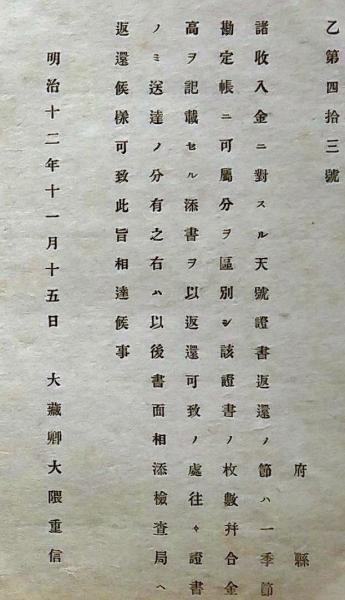 乙第四拾三號
府縣
諸收入金ニ對スル天號證書返還ノ節ハ一季節
勘定帳ニ可屬分ヲ區別シ該證書ノ枚數幷合金
高ヲ記載セル添書ヲ以返還可致ノ處往々證書
ノミ送達ノ分有之右ハ以後書面相添檢查局ヘ
返還候樣可致此旨相達候事
明治十二年十一月十五日 大藏卿大隈重信